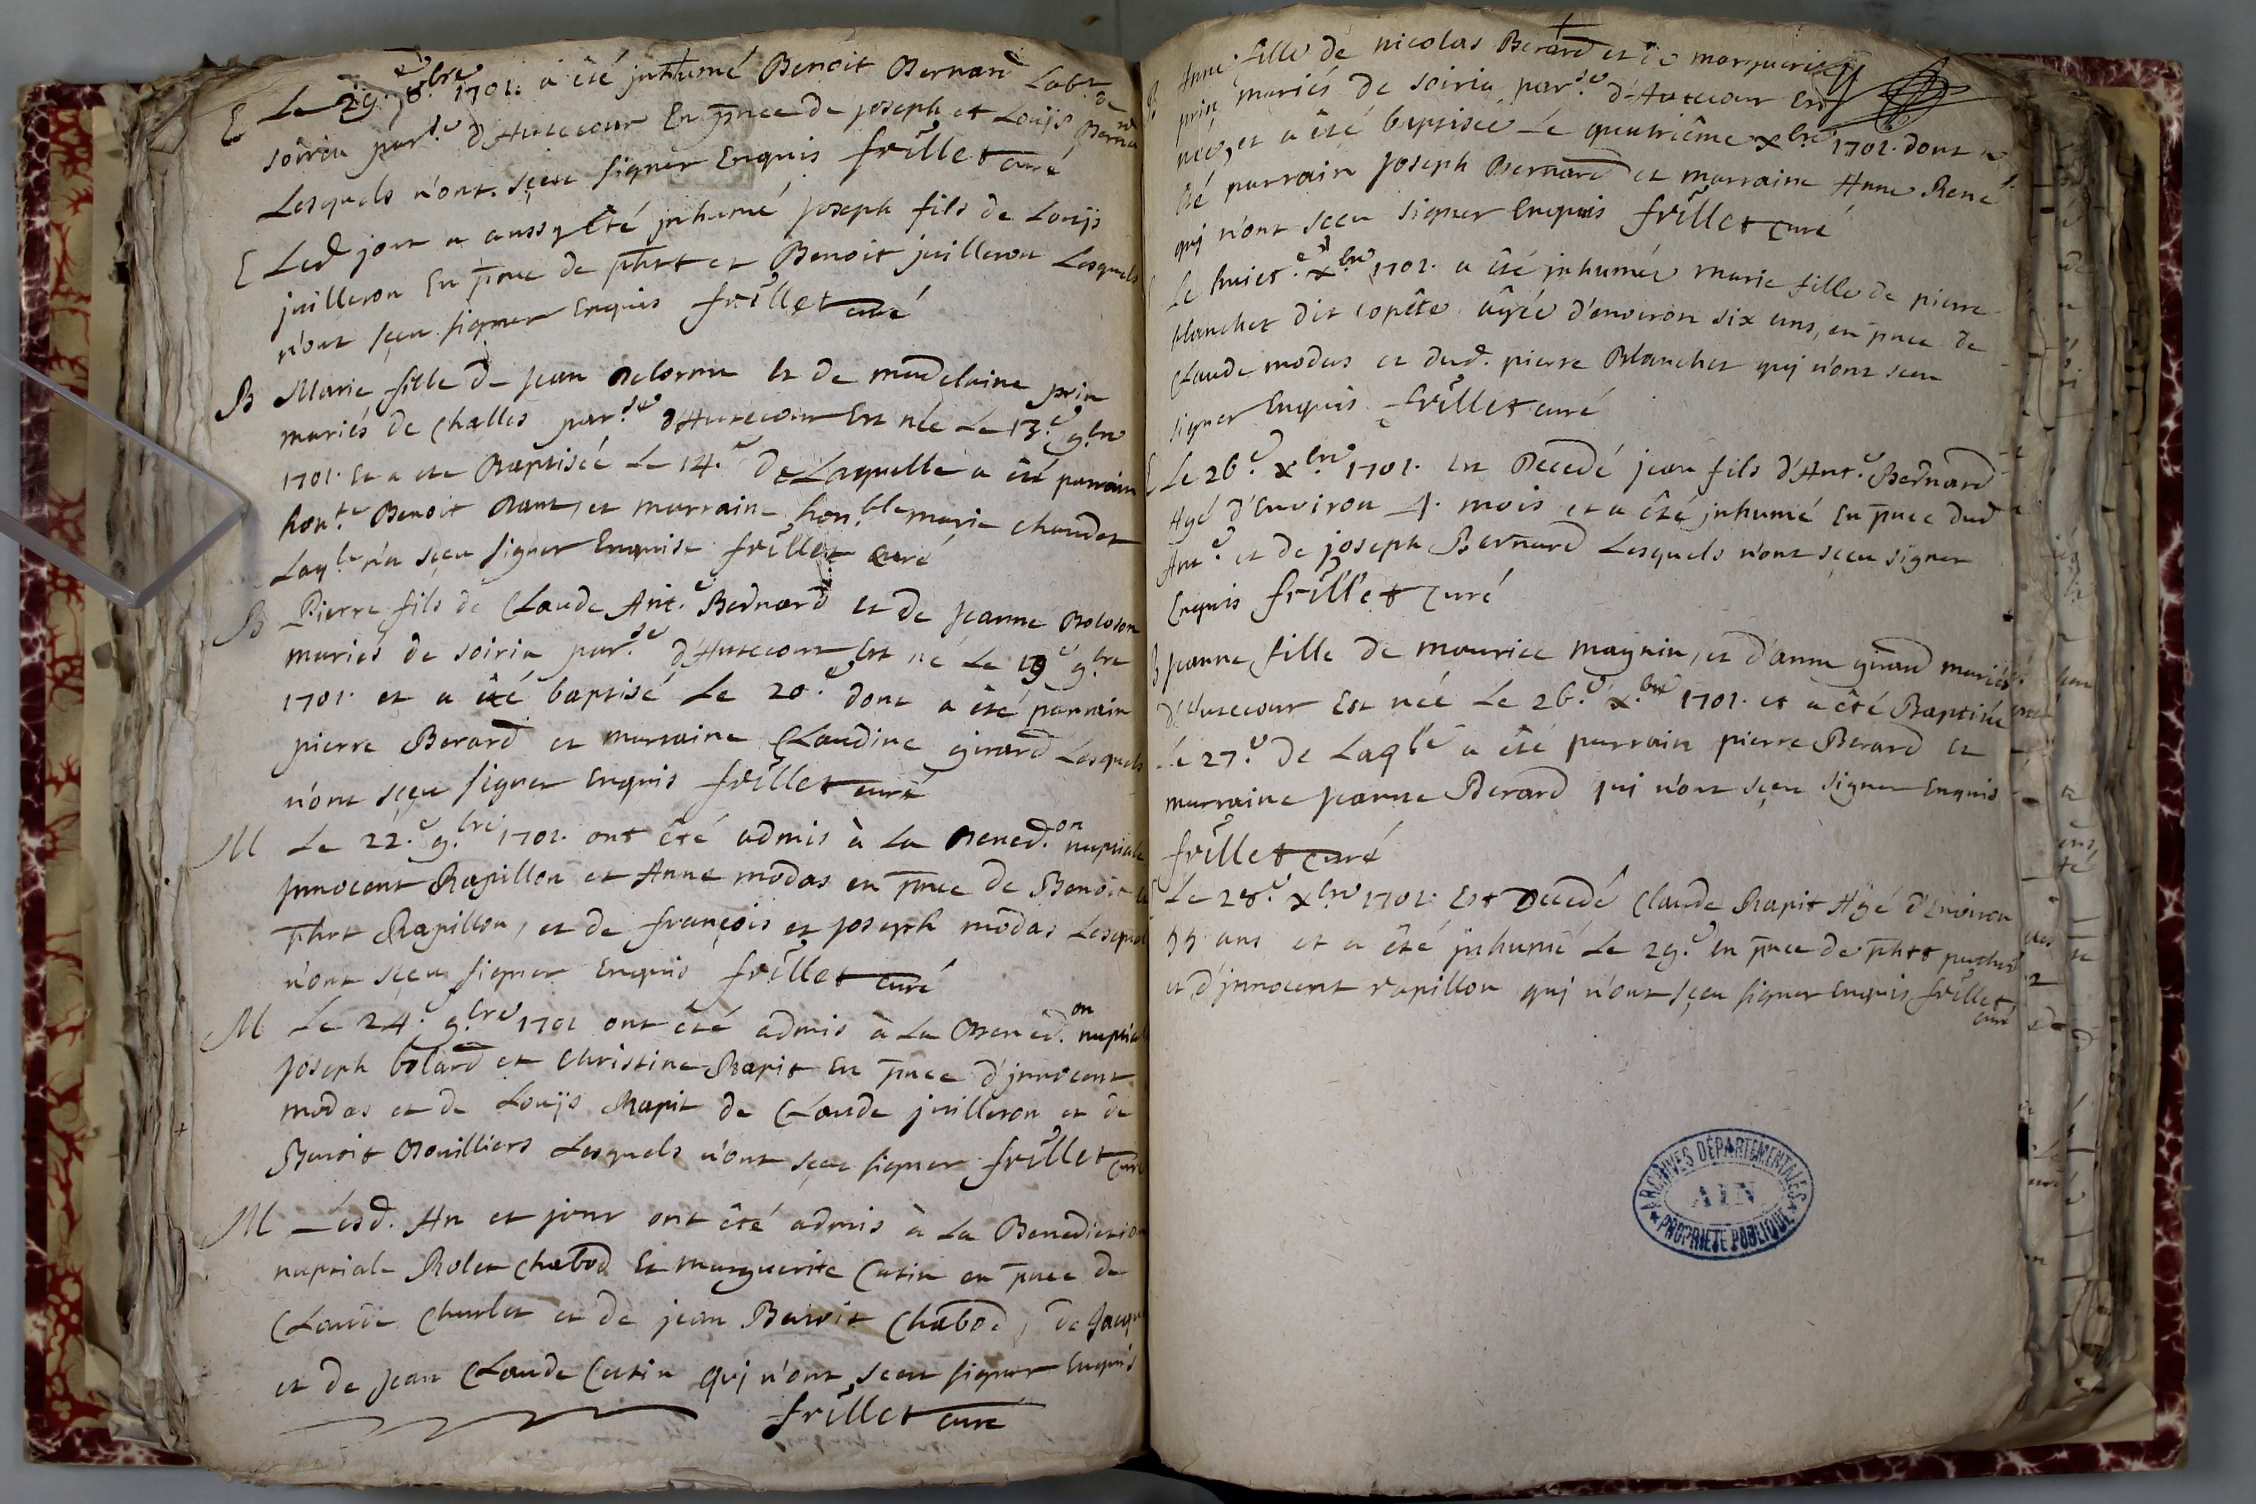 E Le 29.e 8.bre 1701. a été jnhumé Benoit Bernard Labr. de
soiria par.se d'Hutecour En pnce de joseph et Louijs Bernard
Lesquels n'ont sçeu signer Enquis frillet curé
E Led jour a aussy Eté jnhumé joseph fils de Louijs
juilleron En pnce de phrt et Benoit juilleron Lesquels
n'ont sçeu signer Enquis frillet curé
B Marie fille de jean Delorme Et de madelaine prin
mariés de Challes par.se d'Hutecour Est née Le 13.e 9.bre
1701. Et a eté Baptisée Le 14.e De Laquelle a été parrain
hon.te Benoit et marraine hon.ble marie chaudet
Laq.le n'a sçeu signer Enquise frillet curé
B Pierre fils de Claude Ant.e Bernard et de jeanne
mariés de soiria par.se d'Hutecour Est né Le 19.e 9.bre
1701. et a été baptisé Le 20.e dont a été parrain
pierre Berard et marraine Claudine girard Lesquels
n'ont sçeu signer Enquis frillet curé
M Le 22.e 9.bre 1701. ont été admis à La Bened.on nuptiale
jnnocent Rapillon et Anne modas en pnce de Benoit et
phrt Rapillon, et de françois et joseph modas Lesquels
n'ont sçeu signer Enquis frillet curé
M Le 24.e 9.bre 1701 ont été admis à La Bened.on nuptiale
joseph bolard et Christine Rapit En pnce d'jnnocent
modas et de Louijs Rapit de Claude juilleron et de
Benoit Bouilliers Lesquels n'ont sçeu signer frillet curé
M Lesd. An et jour ont été admis à La Benediction
nuptiale Rolet Chabod Et marguerite Cutin en pnce de
Claude Charlet et de jean Benoit Chabod, de Jacque
et de jean Claude Cutin qui n'ont sçeu signer Enquis
frillet curé
B Anne fille de nicolas Berard et de marguerite
prin mariés de soiria par.se d'Hutecour Est
née, et a été baptisée Le quatriême x.bre 1701. dont a
été parrain joseph Bernard et marraine Anne René
qui n'ont sçeu signer Enquis frillet curé
E Le huict.e x.bre 1701. a été jnhumée marie fille de pierre
blanchet dit copête âgée d'environ six ans, en pnce de
Claude modas et dud. pierre Blanchet qui n'ont sceu
signer Enquis frillet curé
E Le 26.e x.bre 1701. Est Decedé jean fils d'Ant.e Bernard
Agé d'Environ 4. mois et a été jnhumé En pnce dud
Ant.e et de joseph Bernard Lesquels n'ont sçeu signer
Enquis frillet curé
B jeanne fille de maurice magnin, et d'anne mariés
d'Hutecour Est née Le 26.e x.bre 1701. et a été Baptisée
Le 27.e De Laq.le a été parrain pierre Berard Et
marraine jeanne Berard qui n'ont sçeu signer Enquis
frillet curé
E Le 28.e x.bre 1701. Est Decedé Claude Rapit Agé d'Environ
55 ans et a été jnhumé Le 29.e En pnce de phrt
et d'jnnocent rapillon qui n'ont sçeu signer Enquis frillet
curé
ARCHIVES DÉPARTEMENTALES
AIN
★ PROPRIÉTÉ PUBLIQUE ★